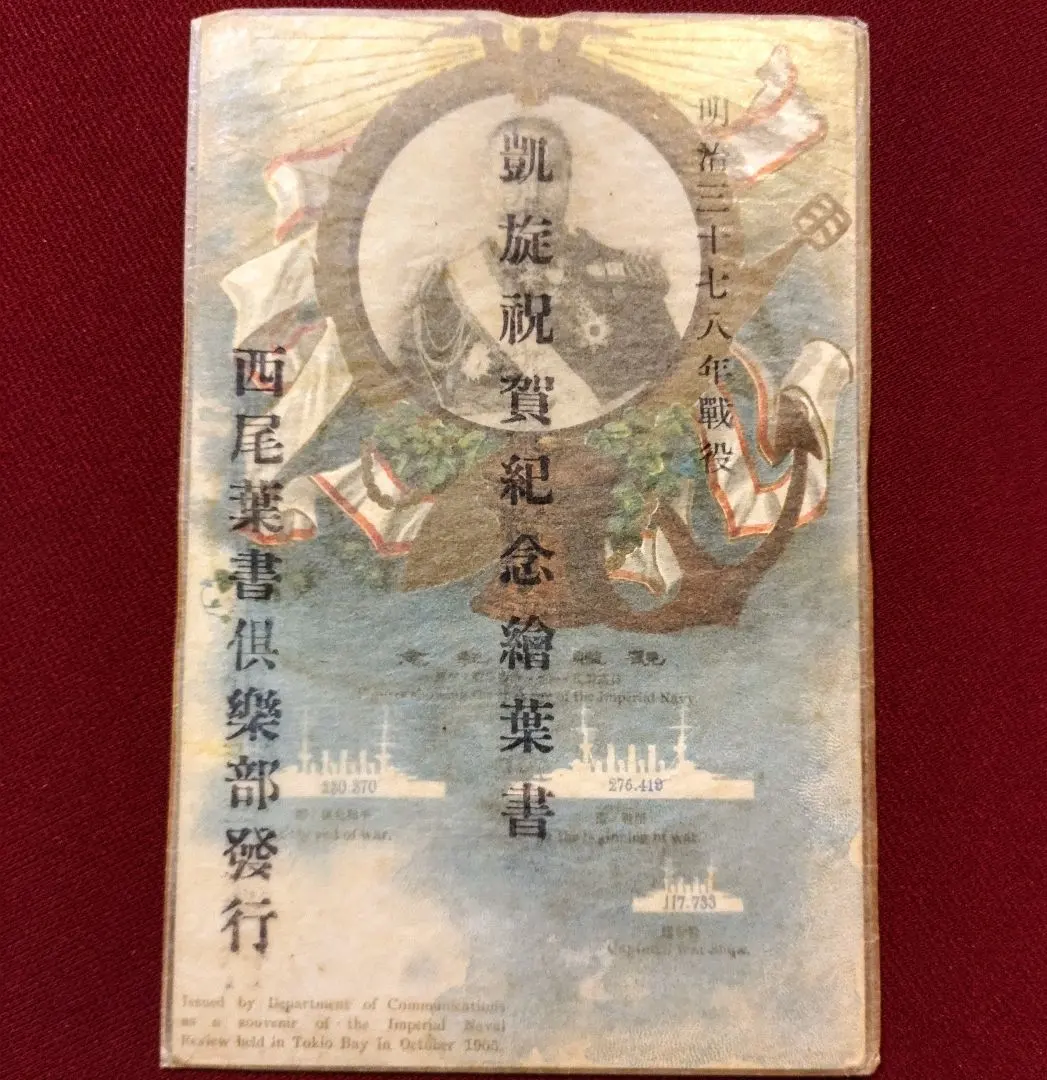 明治三十七八年戰役
凱旋祝賀紀念繪葉書
西尾葉書俱樂部發行
of the Imperial Navy
230.870
276.419
end of war.
the beginning of war.
117.733
Captured war ships.
Issued by Department of Communications
as a souvenir of the Imperial Naval
Review held in Tokio Bay in October 1905.